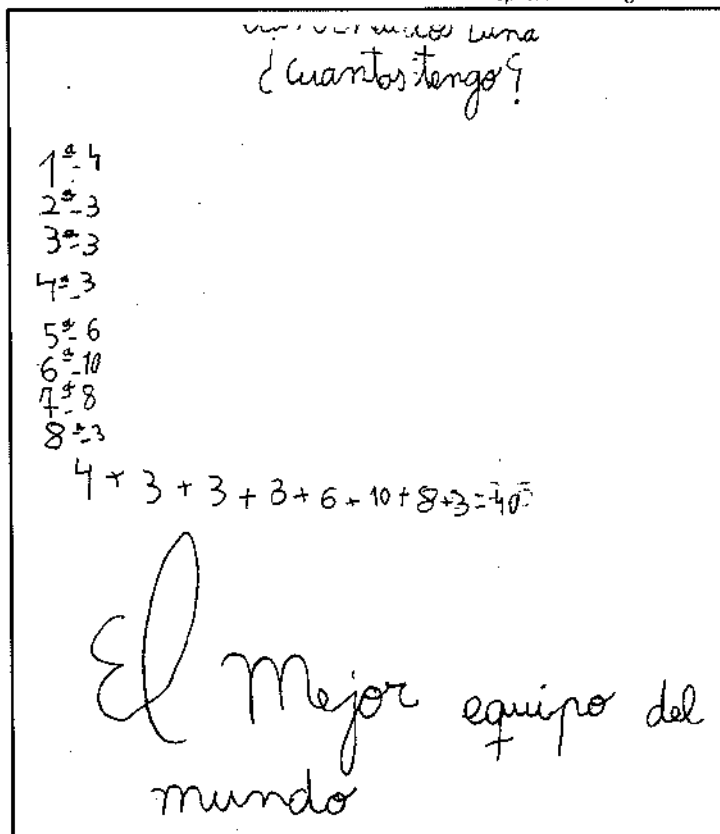 Luna
¿Cuantos tengo?
1ª-4
2ª-3
3ª-3
4ª-3
5ª-6
6ª-10
7ª-8
8ª-3
4+3+3+3+6+10+8+3=40
El Mejor equipo del
mundo